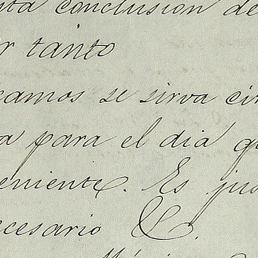 ta conclusion de
r tanto
camos se sirva ci
a para el dia q
eniente. Es jus
cesario &.